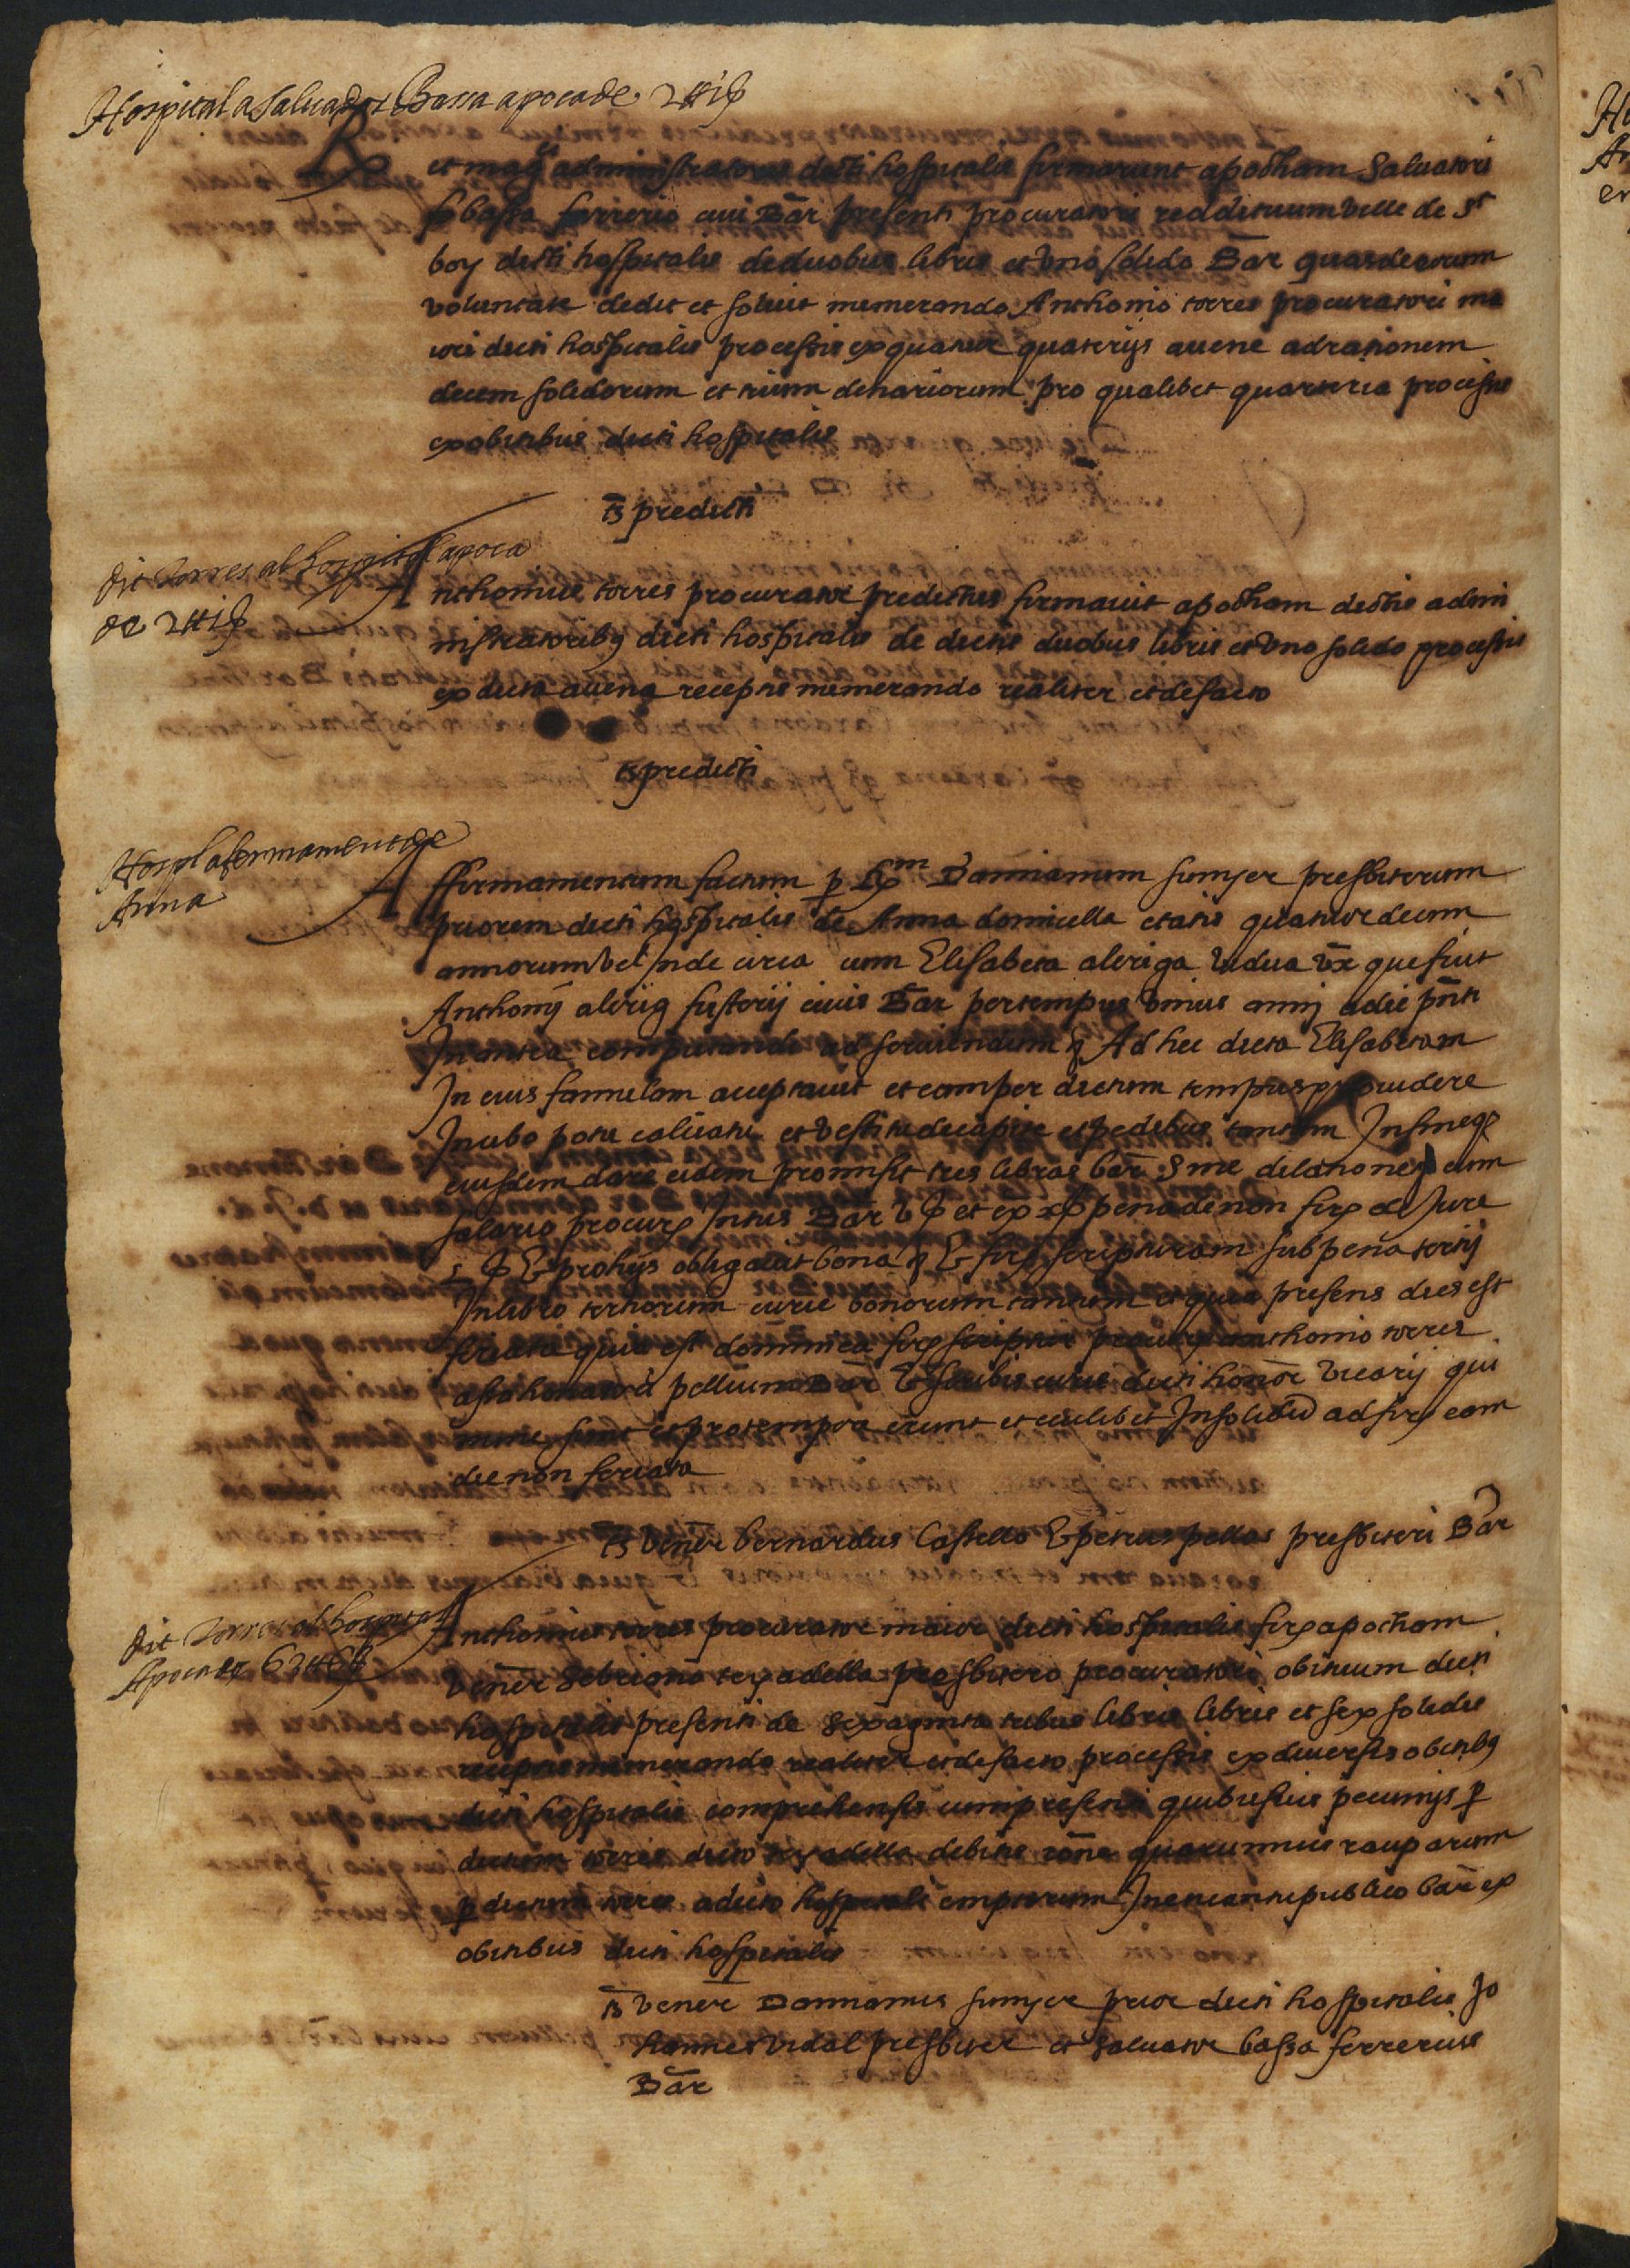 Hospital a Saluador Bassa apoca de 2 ₶ 1 ß
R et magci administratores dicti hospitalis firmarunt apocham Saluatori
bassa ferrerio ciui Bar presenti procuratori reddituum ville de St
boy dicti hospitalis de duobus libris et vno solido Bar quas de eorum
voluntate dedit et soluit numerando Anthonio torres procuratori ma
iori dicti hospitalis processis ex quatuor quarterijs auene ad rationem
decem solidorum et trium denariorum pro qualibet quarteria processis
ex obitibus dicti hospitalis
ts predicti
dit Torres al hospital apoca
de 2 ₶ 1 ß
Anthonius torres procurator predictus firmauit apocham dictis admi
nistratoribus dicti hospitalis de dictis duobus libris et vno solido processis
ex dicta auena receptis numerando realiter et de facto
ts predicti
Hospl afermament de
Anna
Affirmamentum factum p Rm Damianum sunyer presbiterum
priorem dicti hospitalis de Anna domicella etatis quatuordecim
annorum vel inde circa cum Elisabeta aleriga vidua vx que fuit
Anthonij alerig fusterij ciuis Bar per tempus vnius anni a die pnti
In antea computando ad seruiendum & Ad hec dicta Elisabetam
In eius famulam acceptauit et eam per dictum tempus prouidere
In cibo potu calciatu et vestitu de capite et pedibus tantum In fineq
eiusdem dare eidem promisit tres libras bar Sine dilatione cum
salario procurs Intus Bar V ß et ex x ß pena de non firs de Jure
ß Et pro hijs obligauit bona & Et firs scripturam sub pena tertij
In libro tertiorum curie bonorum tantum et quia presens dies est
feriata quia est dominica firs procurs anthonio torres
pellium Bar & scribis curie dicti honor vicarij qui
nunc sunt et pro tempore erunt et cuilibet Insolidu ad firs eam
die non feriata
ts vener bernardus Castello & petrus pellas presbiteri Bar
dit Torres al hospital
Apoca de 63 ₶ 6 ß
Anthonius torres procurator maior dicti hospitalis firs apocham
vener Sebriano texadella presbitero procuratori obituum dicti
hospitalis presenti de Sexaginta tribus libris libris et sex solidis
receptis numerando realiter et de facto processis ex diuersis obitibus
dicti hospitalis comprehensis cum presenti quibusuis pecunijs p
dictum torres dicto texadella debitis rone quarumuis rauparum
p dictum torres a dicto hospitali emptarum In encanti publico bar ex
obitibus dicti hospitalis
ts vener Damianus sunyer prior dicti hospitalis Jo
hannes vidal presbiter et saluator bassa ferrerius
Bar